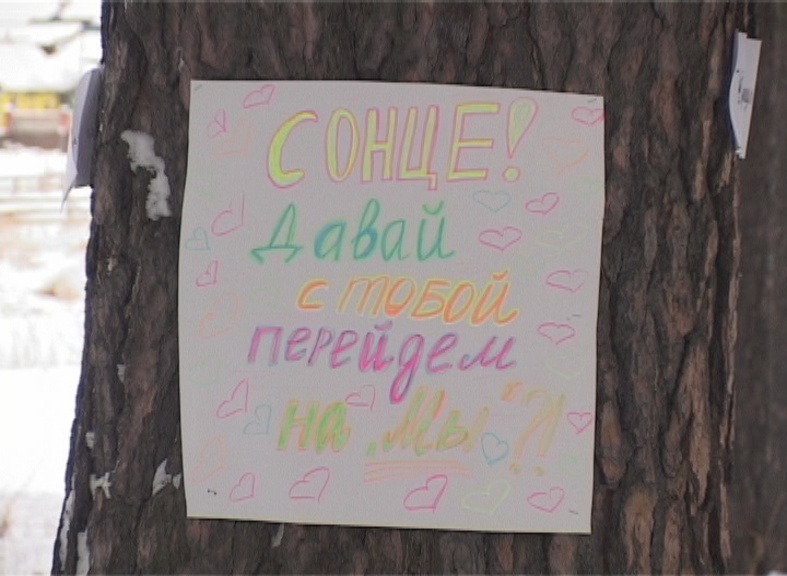 СОНЦЕ!
Давай
с тобой
перейдем
на „Мы"?!